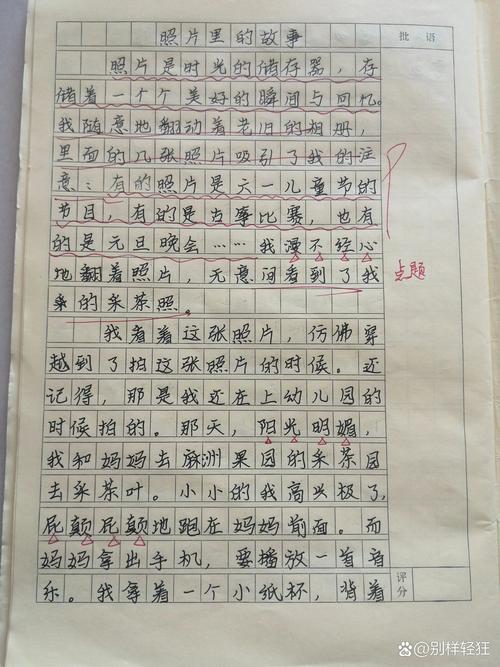 照片里的故事
批语
照片是时光的储存器，存
储着一个个美好的瞬间与回忆。
我随意地翻动着老旧的相册，
里面的几张照片吸引了我的注
意：有的照片是六一儿童节的
节目，有的是古筝比赛，也有
的是元旦晚会……我漫不经心
地翻着照片，无意间看到了我
采的采茶照。
点题
我看着这张照片，仿佛穿
越到了拍这张照片的时候。还
记得，那是我还在上幼儿园的
时候拍的。那天，阳光明媚，
我和妈妈去麻洲果园的采茶园
去采茶叶。小小的我高兴极了，
屁颠屁颠地跑在妈妈前面。而
妈妈拿出手机，要播放一首音
乐。我拿着一个小纸杯，背着
评分
百度 @别样轻狂